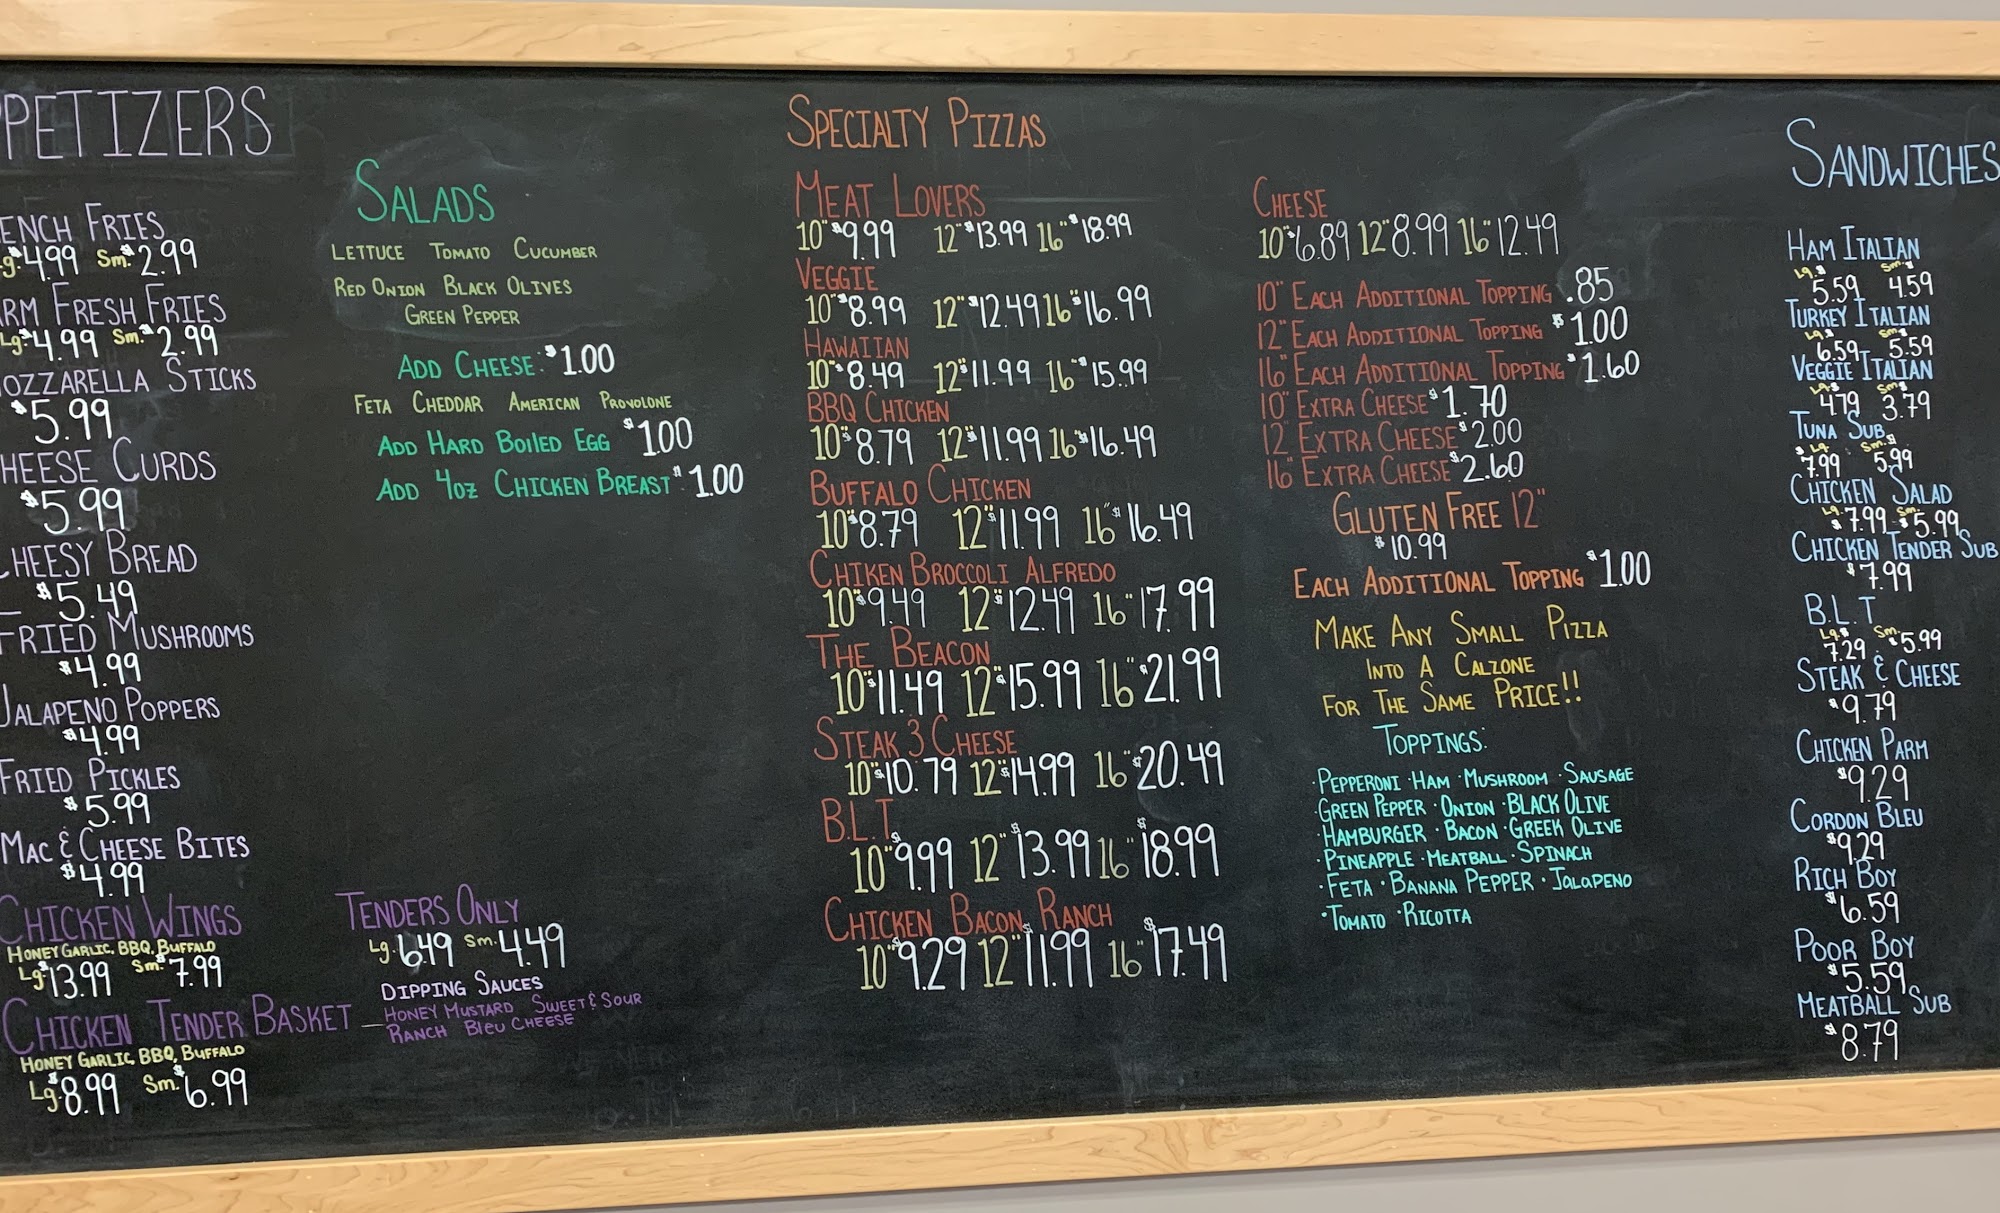 PPETIZERS
ENCH FRIES
g. $4.99 Sm. $2.99
ARM FRESH FRIES
Lg. $4.99 Sm. $2.99
OZZARELLA STICKS
$5.99
HEESE CURDS
$5.99
CHEESY BREAD
$5.49
FRIED MUSHROOMS
$4.99
JALAPENO POPPERS
$4.99
FRIED PICKLES
$5.99
MAC & CHEESE BITES
$4.99
CHICKEN WINGS
HONEY GARLIC, BBQ, BUFFALO
Lg. $13.99 Sm. $7.99
CHICKEN TENDER BASKET —
HONEY GARLIC, BBQ, BUFFALO
Lg. $8.99 Sm. $6.99
SALADS
LETTUCE TOMATO CUCUMBER
RED ONION BLACK OLIVES
GREEN PEPPER
ADD CHEESE: $1.00
FETA CHEDDAR AMERICAN PROVOLONE
ADD HARD BOILED EGG $1.00
ADD 4OZ CHICKEN BREAST $1.00
TENDERS ONLY
Lg. $6.49 Sm. $4.49
DIPPING SAUCES
HONEY MUSTARD SWEET & SOUR
RANCH BLEU CHEESE
SPECIALTY PIZZAS
MEAT LOVERS
10" $9.99 12" $13.99 16" $18.99
VEGGIE
10" $8.99 12" $12.49 16" $16.99
HAWAIIAN
10" $8.49 12" $11.99 16" $15.99
BBQ CHICKEN
10" $8.79 12" $11.99 16" $16.49
BUFFALO CHICKEN
10" $8.79 12" $11.99 16" $16.49
CHIKEN BROCCOLI ALFREDO
10" $9.49 12" $12.49 16" $17.99
THE BEACON
10" $11.49 12" $15.99 16" $21.99
STEAK 3 CHEESE
10" $10.79 12" $14.99 16" $20.49
B.L.T
10" $9.99 12" $13.99 16" $18.99
CHICKEN BACON RANCH
10" $9.29 12" $11.99 16" $17.49
CHEESE
10" $6.89 12" $8.99 16" $12.49
10" EACH ADDITIONAL TOPPING .85
12" EACH ADDITIONAL TOPPING $1.00
16" EACH ADDITIONAL TOPPING $1.60
10" EXTRA CHEESE $1.70
12" EXTRA CHEESE $2.00
16" EXTRA CHEESE $2.60
GLUTEN FREE 12"
$10.99
EACH ADDITIONAL TOPPING $1.00
MAKE ANY SMALL PIZZA
INTO A CALZONE
FOR THE SAME PRICE!!
TOPPINGS:
·PEPPERONI ·HAM ·MUSHROOM ·SAUSAGE
·GREEN PEPPER ·ONION ·BLACK OLIVE
·HAMBURGER ·BACON ·GREEK OLIVE
·PINEAPPLE ·MEATBALL ·SPINACH
·FETA ·BANANA PEPPER ·JALAPENO
·TOMATO ·RICOTTA
SANDWICHES
HAM ITALIAN
Lg. $ Sm. $
5.59 4.59
TURKEY ITALIAN
Lg. $ Sm. $
6.59 5.59
VEGGIE ITALIAN
Lg. $ Sm. $
4.79 3.79
TUNA SUB
Lg. $ Sm. $
7.99 5.99
CHICKEN SALAD
Lg. Sm.
$7.99 $5.99
CHICKEN TENDER SUB
$7.99
B.L.T
Lg. $ Sm.
7.29 $5.99
STEAK & CHEESE
$9.79
CHICKEN PARM
$9.29
CORDON BLEU
$9.29
RICH BOY
$6.59
POOR BOY
$5.59
MEATBALL SUB
$8.79